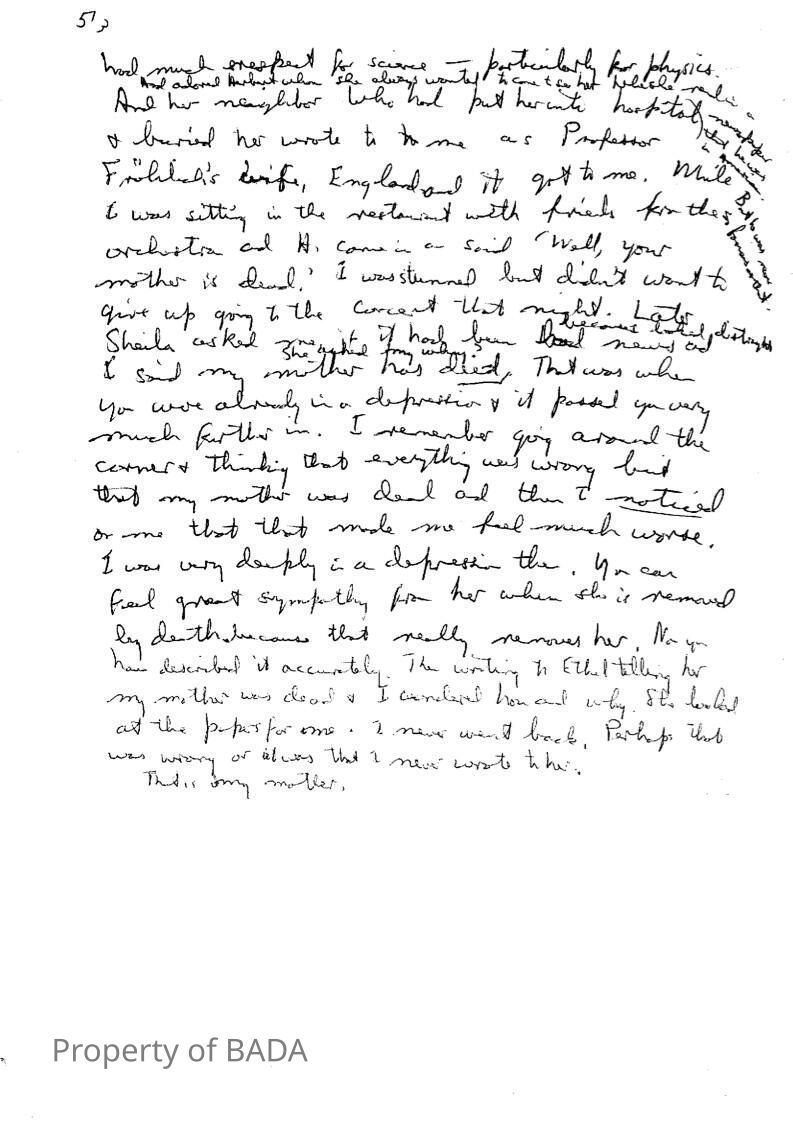 5⁷⁄₃
had much respect for science — particularly for physics.
And adored Herbert whom she always wanted to come to see her
And her neighbor who had put her into hospital
newspaper
that he was
in
But he was now
& buried her wrote to to me as Professor
Fröhlich's wife, England and it got to me. While
I was sitting in the restaurant with friends from the
orchestra and H. came in and said "Well, your
mother is dead." I was stunned but didn't want to
give up going to the concert that night. Later
because I looked distraught
Sheila asked me if it had been bad news and
She asked
I said my mother has died. That was when
you were already in a depression & it passed you very
much further in. I remember going around the
corner & thinking that everything was wrong but
that my mother was dead and then I noticed
or me that that made me feel much worse.
I was very deeply in a depression then. You can
feel great sympathy for her when she is removed
by death because that really removes her. No you
have described it accurately. The writing to Ethel telling her
my mother was dead & I wondered how and why. She looked
at the papers for me. I never went back. Perhaps that
was wrong or it was that I never wrote to her.
That is my mother.
Property of BADA